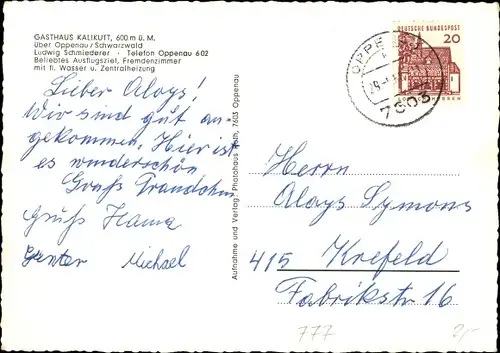 GASTHAUS KALIKUTT, 600 m ü. M.
über Oppenau / Schwarzwald
Ludwig Schmiederer · Telefon Oppenau 602
Beliebtes Ausflugsziel, Fremdenzimmer
mit fl. Wasser u. Zentralheizung
Lieber Aloys!
Wir sind gut an-
gekommen. Hier ist
es wunderschön
Gruß
Gruß Hanna
Günter Michael
Aufnahme und Verlag: Photohaus 7603 Oppenau
DEUTSCHE BUNDESPOST
20
OPPE
7603
Herrn
Aloys Symons
415 Krefeld
Fabrikstr 16
777
2,-